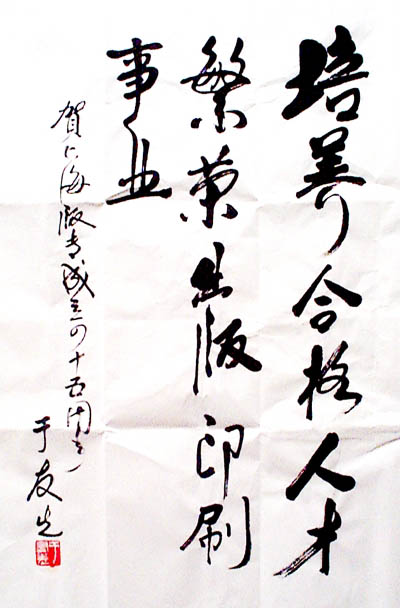 培养合格人才
繁荣出版印刷
事业
賀上海版专成立四十五周年
于友先